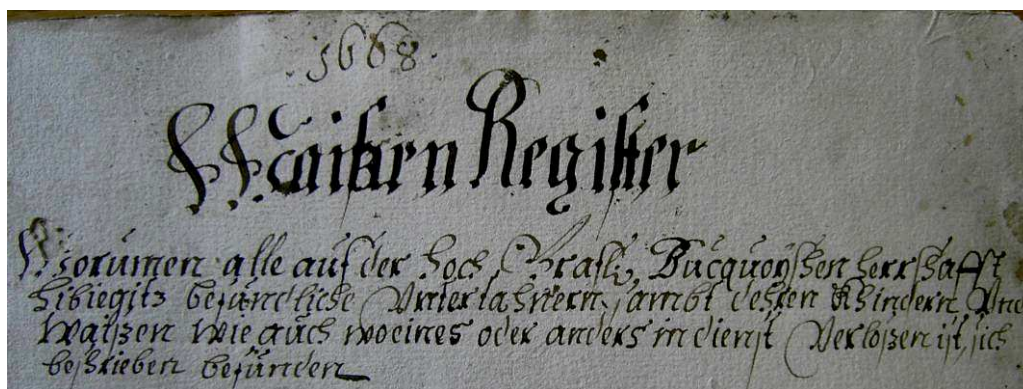 1668.
Waisen Register
Worinnen alle auf der Hoch Gräfl. Bucquoyschen herrschafft
Libiegitz befundliche Unterthanern, sambt dehren Khindern, Und
Waißen wie auch wo eines oder anders in dienst Verloßen ist, sich
beschrieben befünden